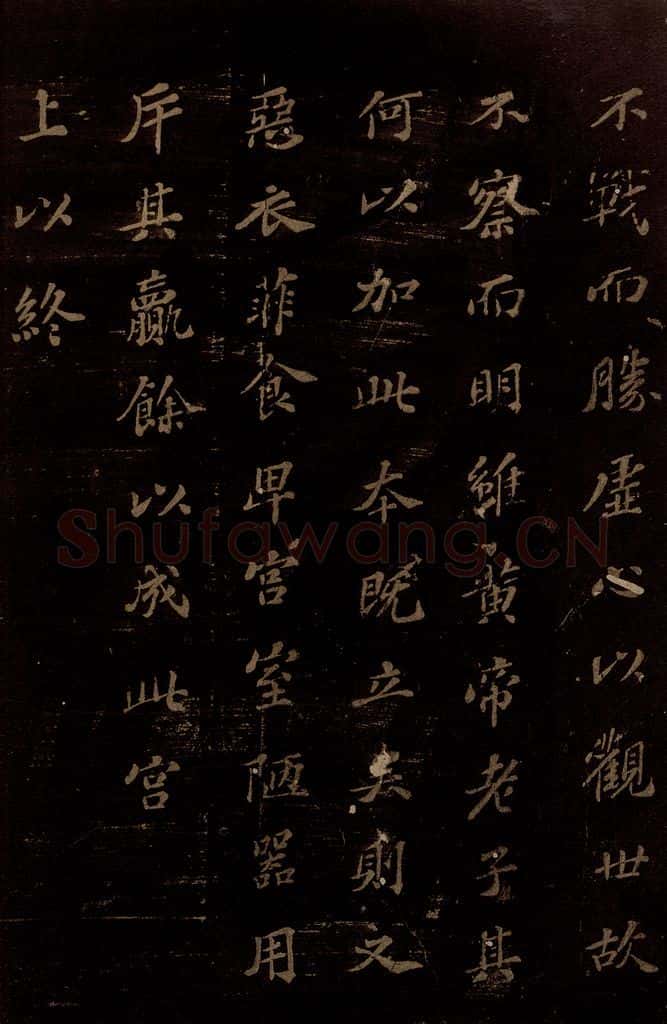 不戰而勝虛心以觀世故
不察而明維黃帝老子其
何以加此本既立矣則又
惡衣菲食卑宮室陋器用
斥其贏餘以成此宮
上以終
Shufawang.CN